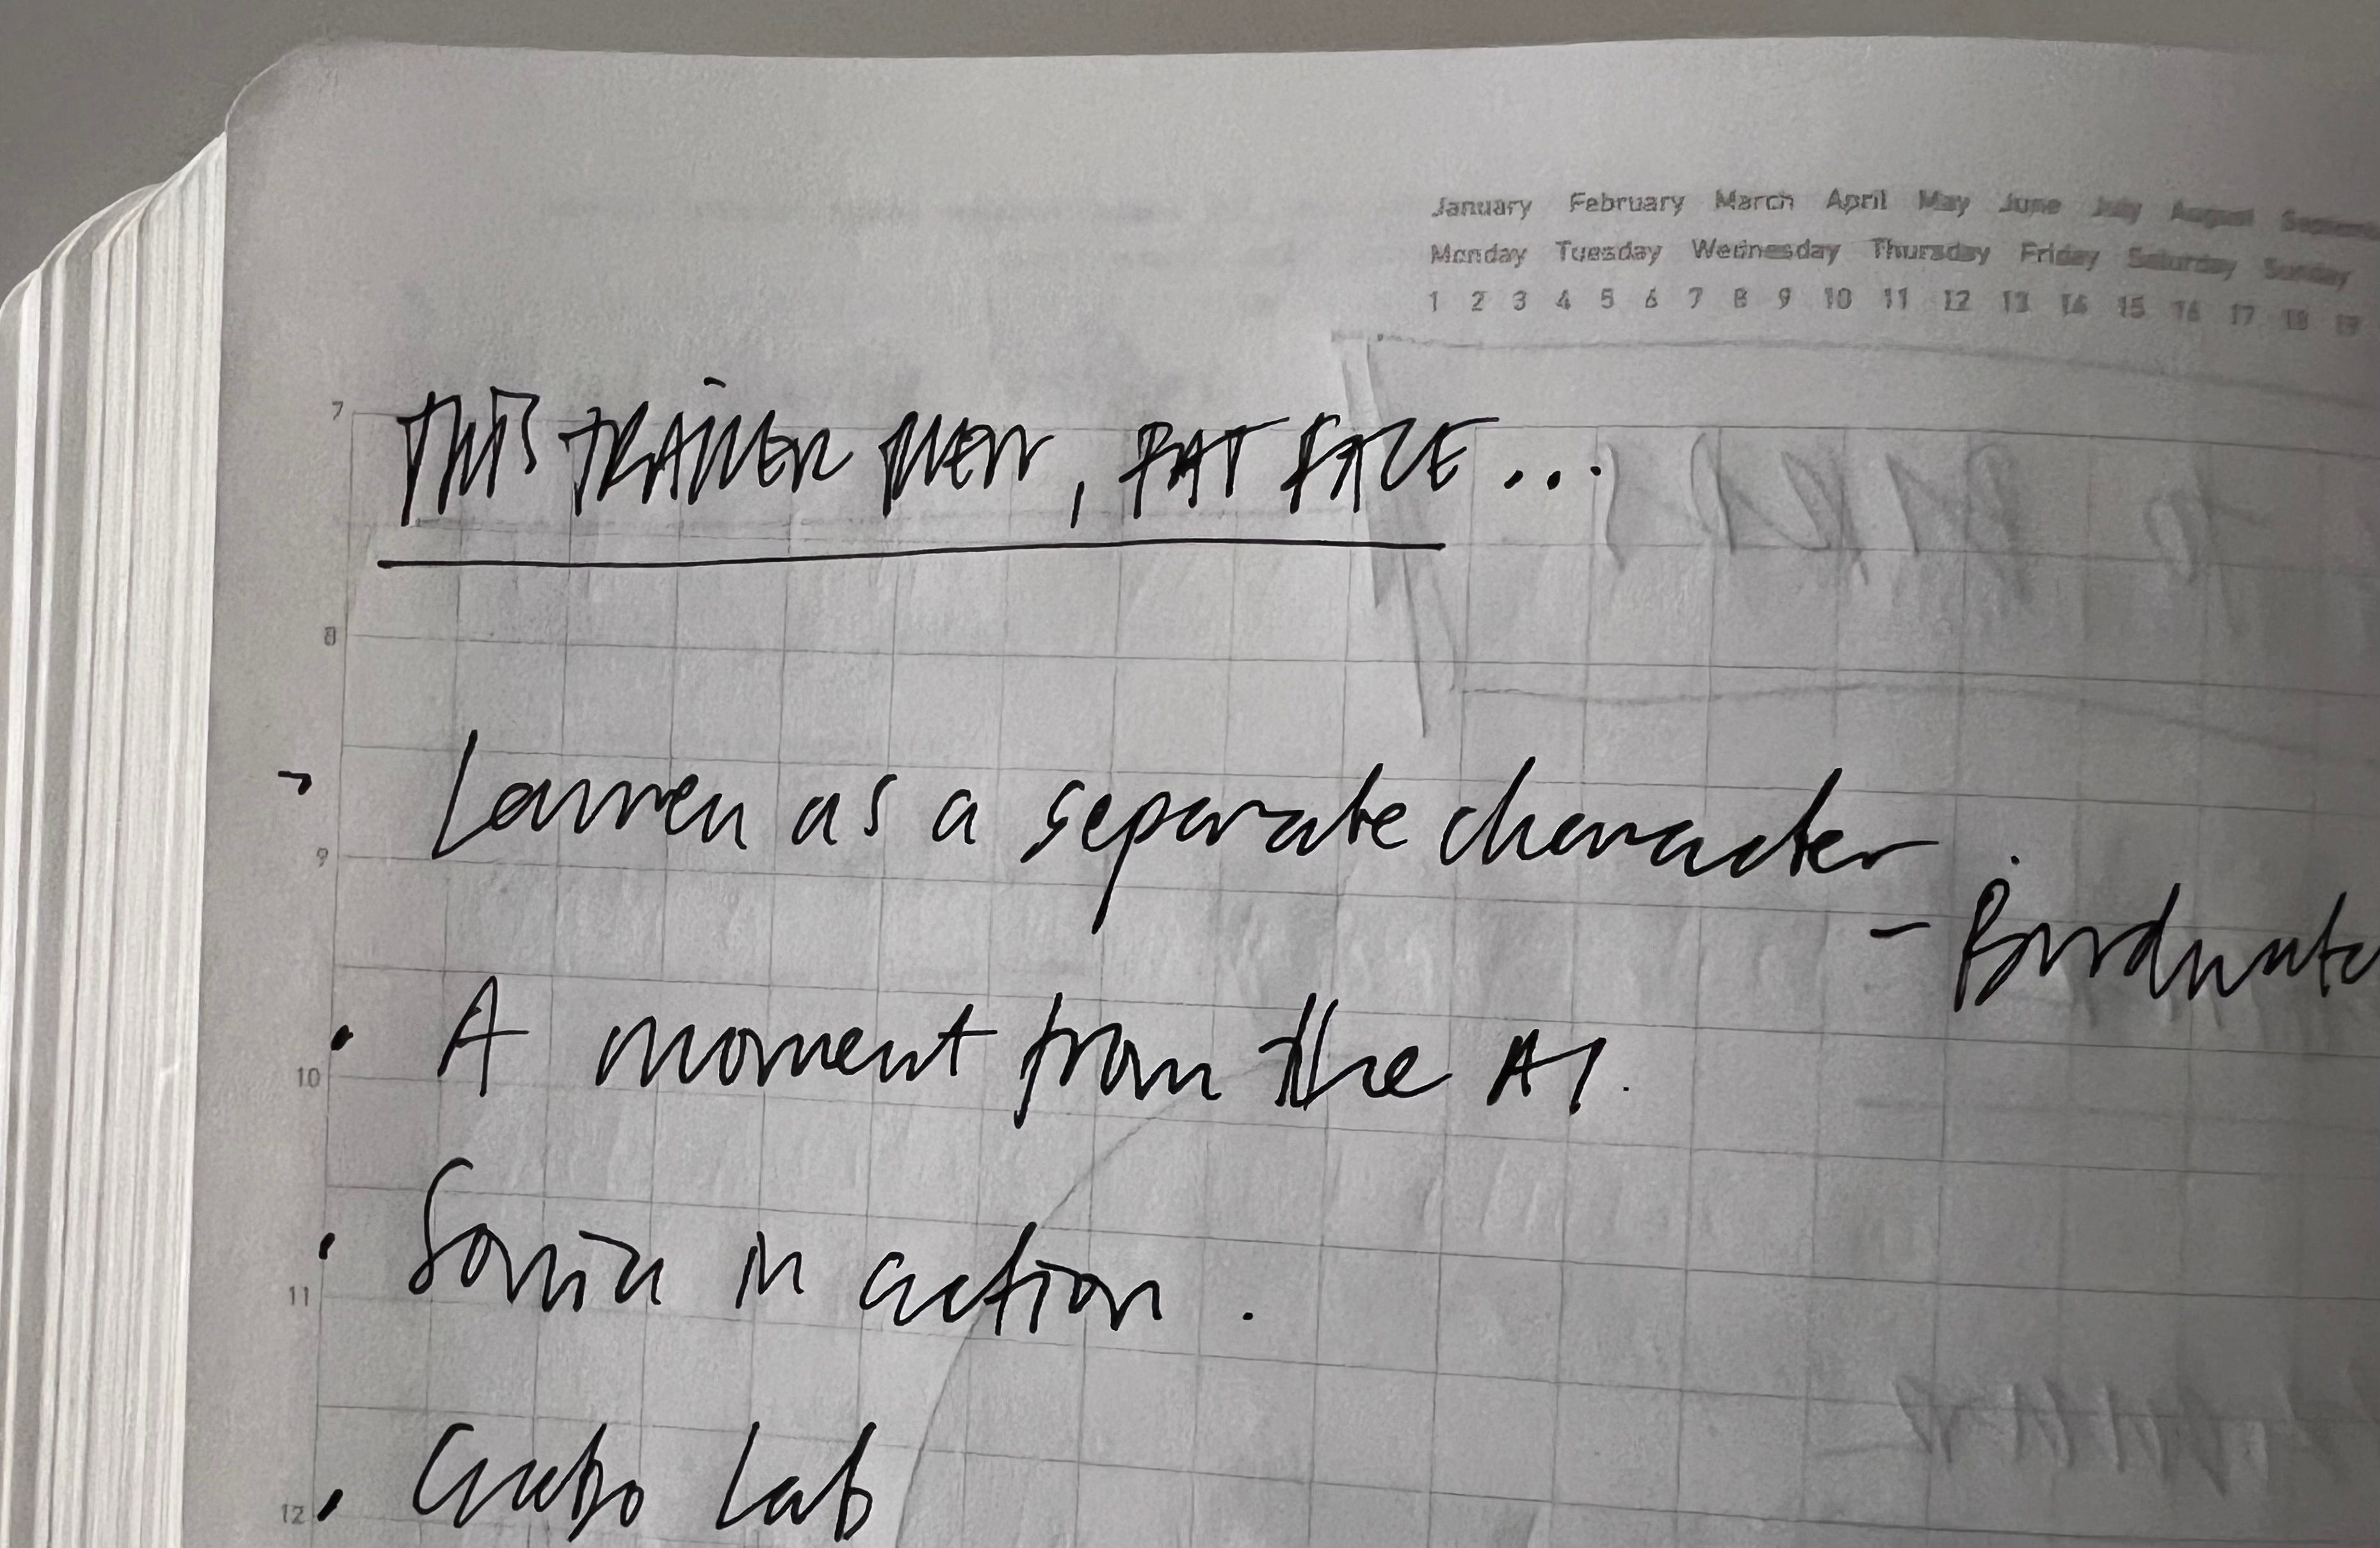 January February March April May June July August
Monday Tuesday Wednesday Thursday Friday Saturday Sunday
1 2 3 4 5 6 7 8 9 10 11 12 13 14 15 16 17 18 19
7
THIS TRAILER , FAT FACE...
8
Lauren as a separate character
9
A moment from the AI.
10
in action.
11
Lab
12